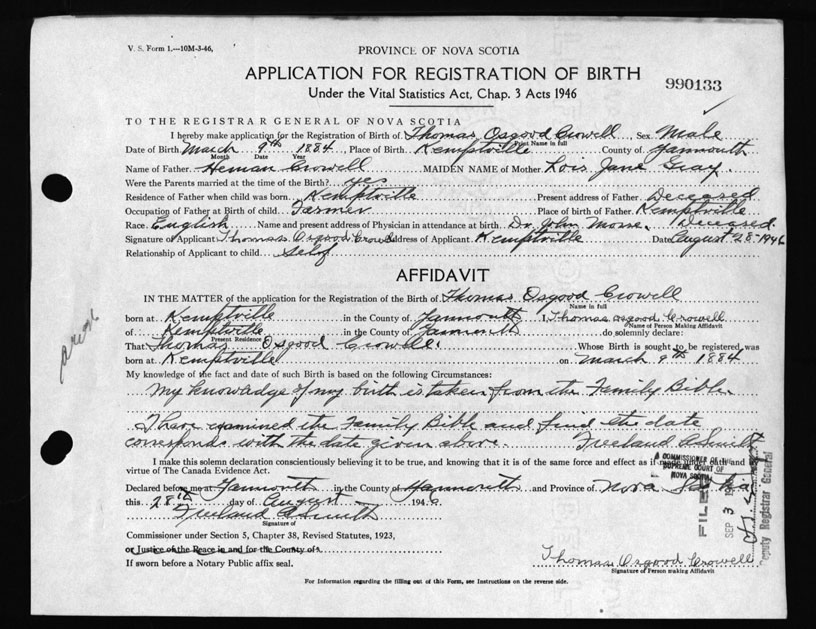 V. S. Form 1.—10M-3-46.
PROVINCE OF NOVA SCOTIA
APPLICATION FOR REGISTRATION OF BIRTH
990133
Under the Vital Statistics Act, Chap. 3 Acts 1946
TO THE REGISTRAR GENERAL OF NOVA SCOTIA
I hereby make application for the Registration of Birth of Thomas Osgood Crowell, Sex Male
Print Name in full
Date of Birth March 9th 1884, Place of Birth Kemptville County of Yarmouth
Month Date Year
Name of Father Heman Crowell MAIDEN NAME of Mother Lois Jane Gray.
Were the Parents married at the time of the Birth? yes
Residence of Father when child was born Kemptville Present address of Father Deceased
Occupation of Father at Birth of child Farmer Place of birth of Father Kemptville
Race English Name and present address of Physician in attendance at birth Dr. John Morse. Deceased.
Signature of Applicant Thomas Osgood Crowell Address of Applicant Kemptville Date August 28-1946
Relationship of Applicant to child Self
AFFIDAVIT
IN THE MATTER of the application for the Registration of the Birth of Thomas Osgood Crowell
Name in full
born at Kemptville in the County of Yarmouth I, Thomas Osgood Crowell
Name of Person Making Affidavit
of Kemptville in the County of Yarmouth do solemnly declare:
Present Residence
That Thomas Osgood Crowell. Whose Birth is sought to be registered was
born at Kemptville on March 9th 1884
My knowledge of the fact and date of such Birth is based on the following Circumstances:
My knowledge of my birth is taken from the Family Bible.
I have examined the Family Bible and find the date
corresponds with the date given above. Freeland A Smith
A COMMISSIONER OF THE
SUPREME COURT OF
NOVA SCOTIA
I make this solemn declaration conscientiously believing it to be true, and knowing that it is of the same force and effect as if made under oath and by
virtue of The Canada Evidence Act.
Declared before me at Yarmouth in the County of Yarmouth and Province of Nova Scotia
this 28th day of August 1946
Freeland A Smith
Signature of
FILED
SEP 3
Deputy Registrar General
Commissioner under Section 5, Chapter 38, Revised Statutes, 1923,
or Justice of the Peace in and for the County of
If sworn before a Notary Public affix seal.
Thomas Osgood Crowell
Signature of Person making Affidavit
For Information regarding the filling out of this Form, see Instructions on the reverse side.